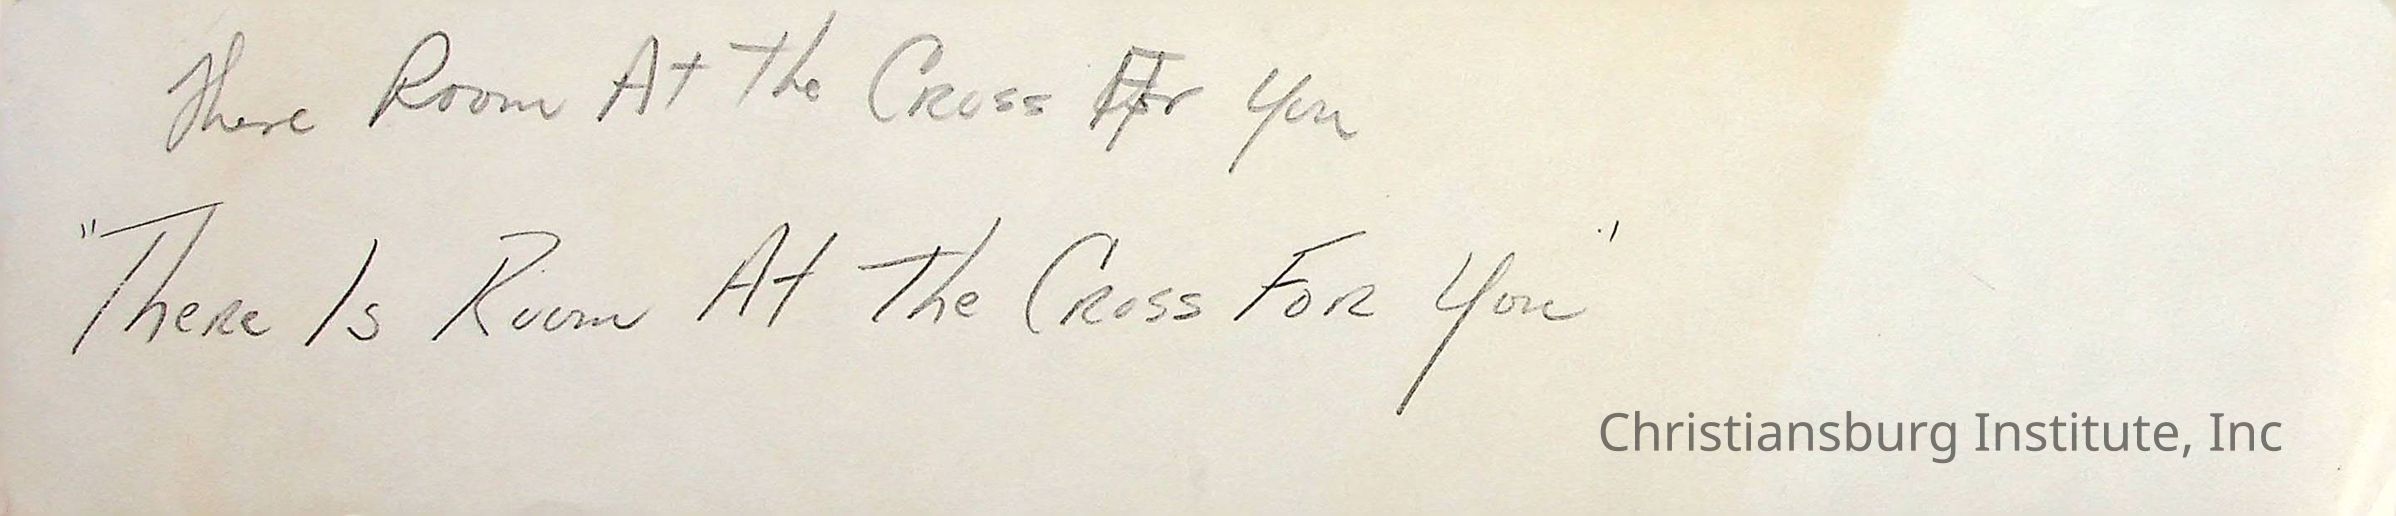 There Room At The Cross For You
"There Is Room At The Cross For You"
Christiansburg Institute, Inc